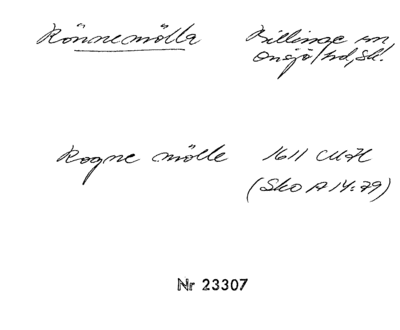 Rönnemölla Billinge sn
Onsjö hd, Sk.
Rogne mölle 1611 CMH
(Sko A 14:79)
Nr 23307